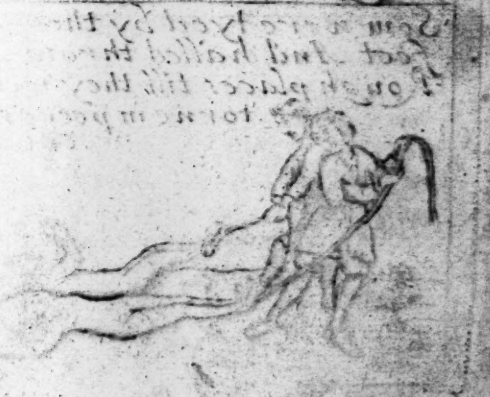 Som were tyed by the
feet And halled throw
Rough places till they
torne in peeces